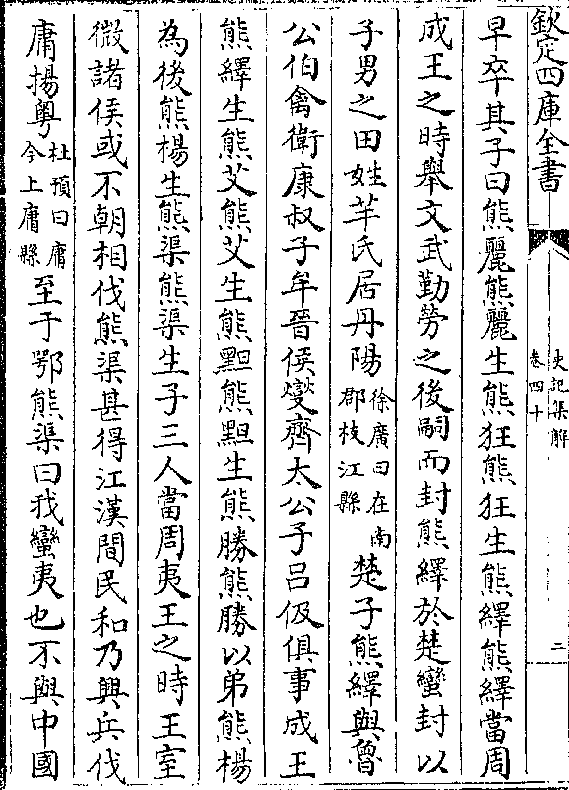 欽定四庫全書
史記集解
卷四十
二
早卒其子曰熊麗熊麗生熊狂熊狂生熊繹熊繹當周
成王之時舉文武勤勞之後嗣而封熊繹於楚蠻封以
子男之田姓芈氏居丹陽徐廣曰在南郡枝江縣楚子熊繹與魯
公伯禽衛康叔子牟晉侯燮齊太公子呂伋俱事成王
熊繹生熊艾熊艾生熊䵣熊䵣生熊勝熊勝以弟熊楊
為後熊楊生熊渠熊渠生子三人當周夷王之時王室
微諸侯或不朝相伐熊渠甚得江漢間民和乃興兵伐
庸揚粵杜預曰庸今上庸縣至于鄂熊渠曰我蠻夷也不與中國